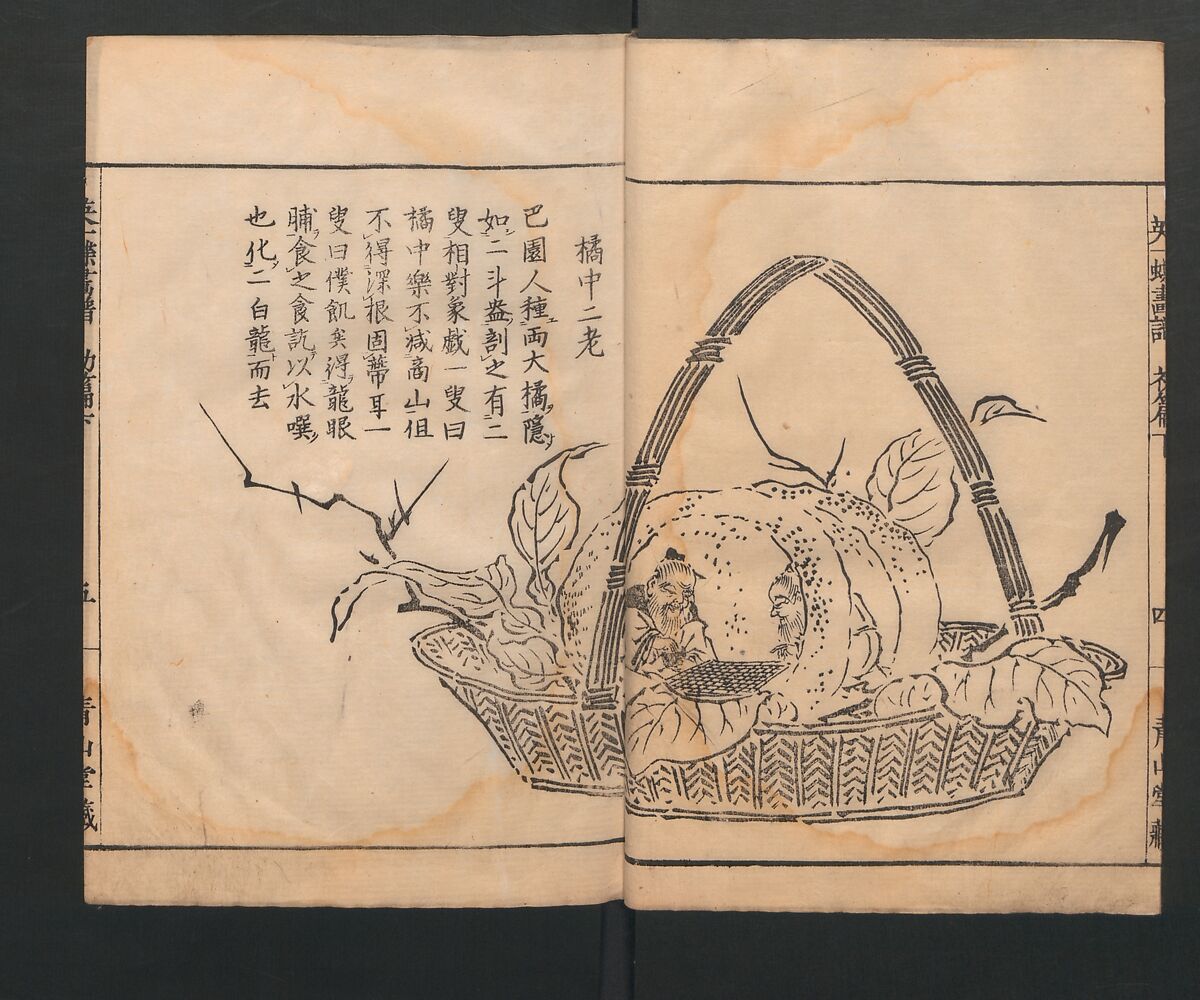 橘中二老
巴園人種両大橘隠
如二斗盎剖之有二
叟相對象戯一叟曰
橘中樂不減商山但
不得深根固蔕耳一
叟曰僕飢矣得龍眼
脯食之食訖以水噀
也化二白龍而去
英一蝶畫譜
四
青山堂藏
英一蝶畫譜
五
青山堂藏